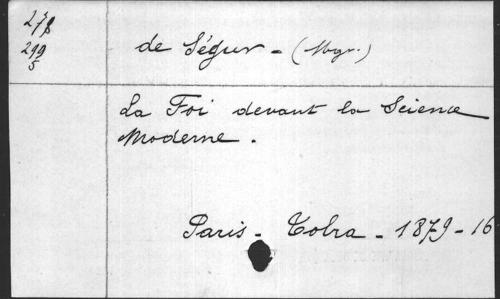 278
299
5
de Ségur - (Mgr.)
La Foi devant la Science
Moderne.
Paris - Tolra - 1879 - 16